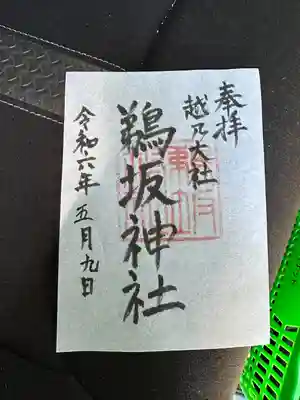 奉拝
越乃大社
鵜坂神社
令和六年 五月九日